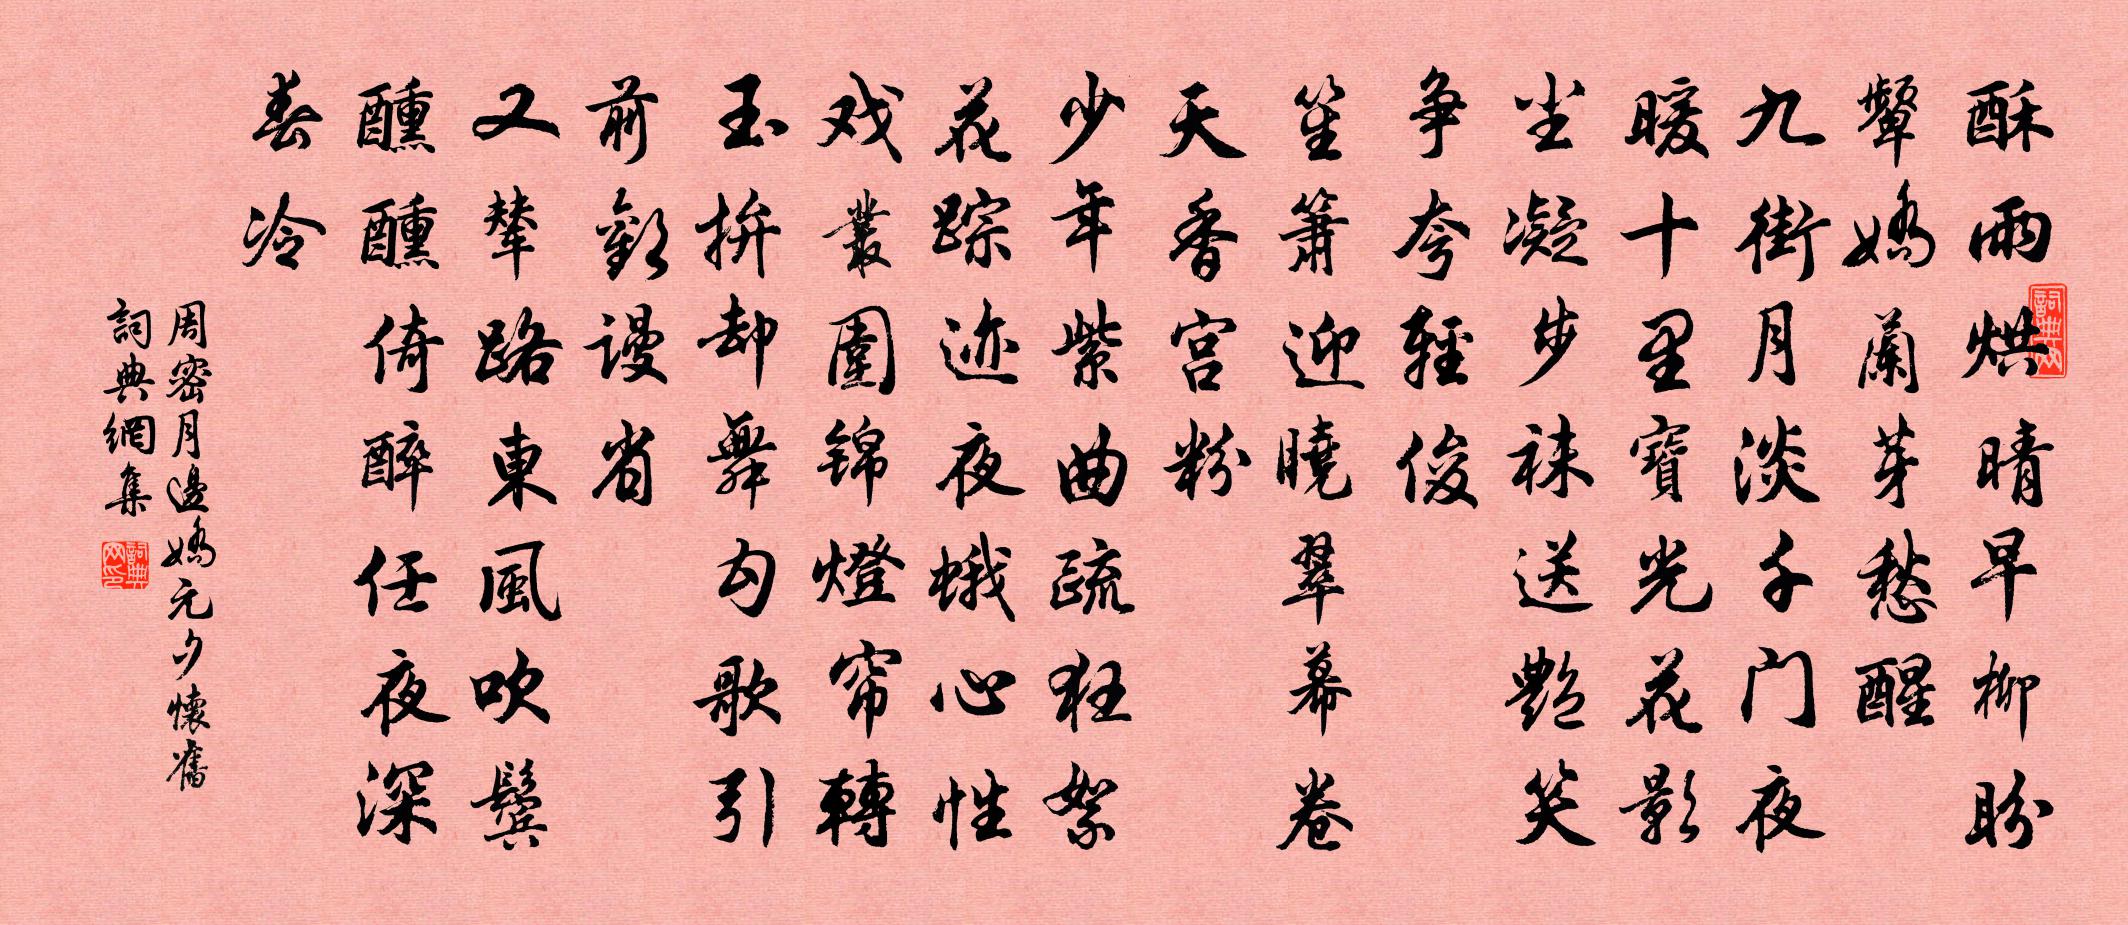 酥雨烘晴早柳盼
颦嬌蘭芽愁醒
九街月淡千门夜
暖十里寶光花影
尘凝步袜送艷笑
争夸輕俊
笙簫迎曉翠幕卷
天香宫粉
少年紫曲疏狂絮
花踪迹夜蛾心性
戏叢圍锦燈帘轉
玉拚却舞勾歌引
前歡谩省
又輦路東風吹鬓
醺醺倚醉任夜深
春冷
周密月邊嬌元夕懷舊
詞典網集
詞典网
詞典网印